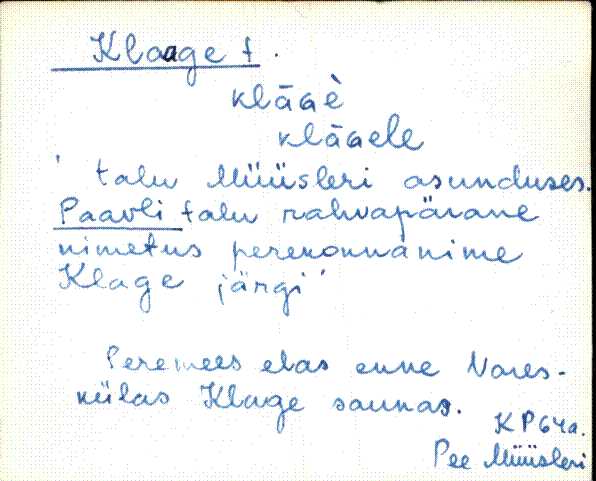 Klaage t.
klāgè
klāgele
' talu Müüsleri asunduses.
Paavli talu rahvapärane
nimetus perekonnanime
Klage järgi'
Peremees elas enne Vares-
külas Klage saunas.
KP64a.
Pee Müüsleri